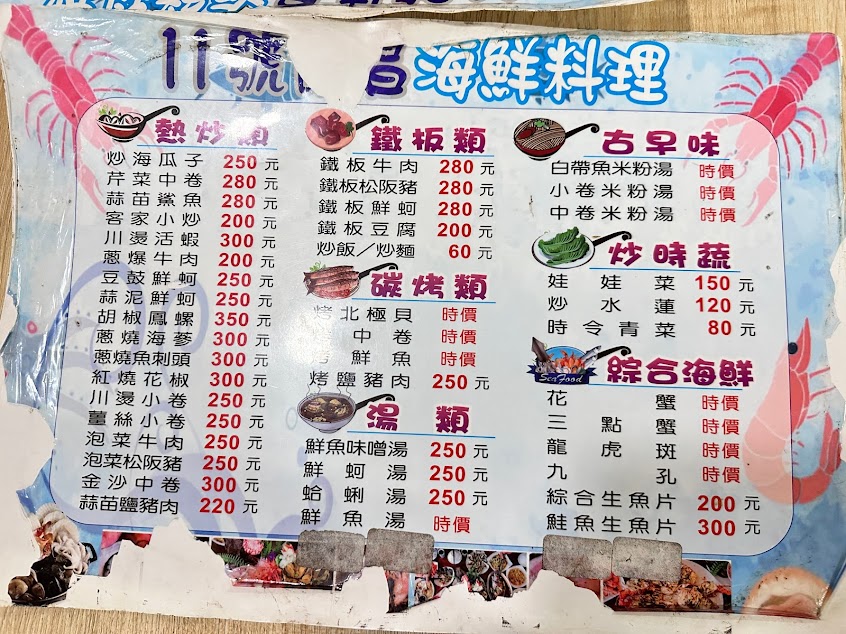 11號 昌海鮮料理
熱炒類
炒海瓜子 250元
芹菜中卷 280元
蒜苗鯊魚 280元
客家小炒 200元
川燙活蝦 300元
蔥爆牛肉 200元
豆鼓鮮蚵 250元
蒜泥鮮蚵 250元
胡椒鳳螺 350元
蔥燒海參 300元
蔥燒魚刺頭 300元
紅燒花椒 300元
川燙小卷 250元
薑絲小卷 250元
泡菜牛肉 250元
泡菜松阪豬 250元
金沙中卷 300元
蒜苗鹽豬肉 220元
鐵板類
鐵板牛肉 280元
鐵板松阪豬 280元
鐵板鮮蚵 280元
鐵板豆腐 200元
炒飯/炒麵 60元
碳烤類
烤北極貝 時價
中卷 時價
鮮魚 時價
烤鹽豬肉 250元
湯類
鮮魚味噌湯 250元
鮮蚵湯 250元
蛤蜊湯 250元
鮮魚湯 時價
古早味
白帶魚米粉湯 時價
小卷米粉湯 時價
中卷米粉湯 時價
炒時蔬
娃娃菜 150元
炒水蓮 120元
時令青菜 80元
SeaFood
綜合海鮮
花蟹 時價
三點蟹 時價
龍虎斑 時價
九孔 時價
綜合生魚片 200元
鮭魚生魚片 300元